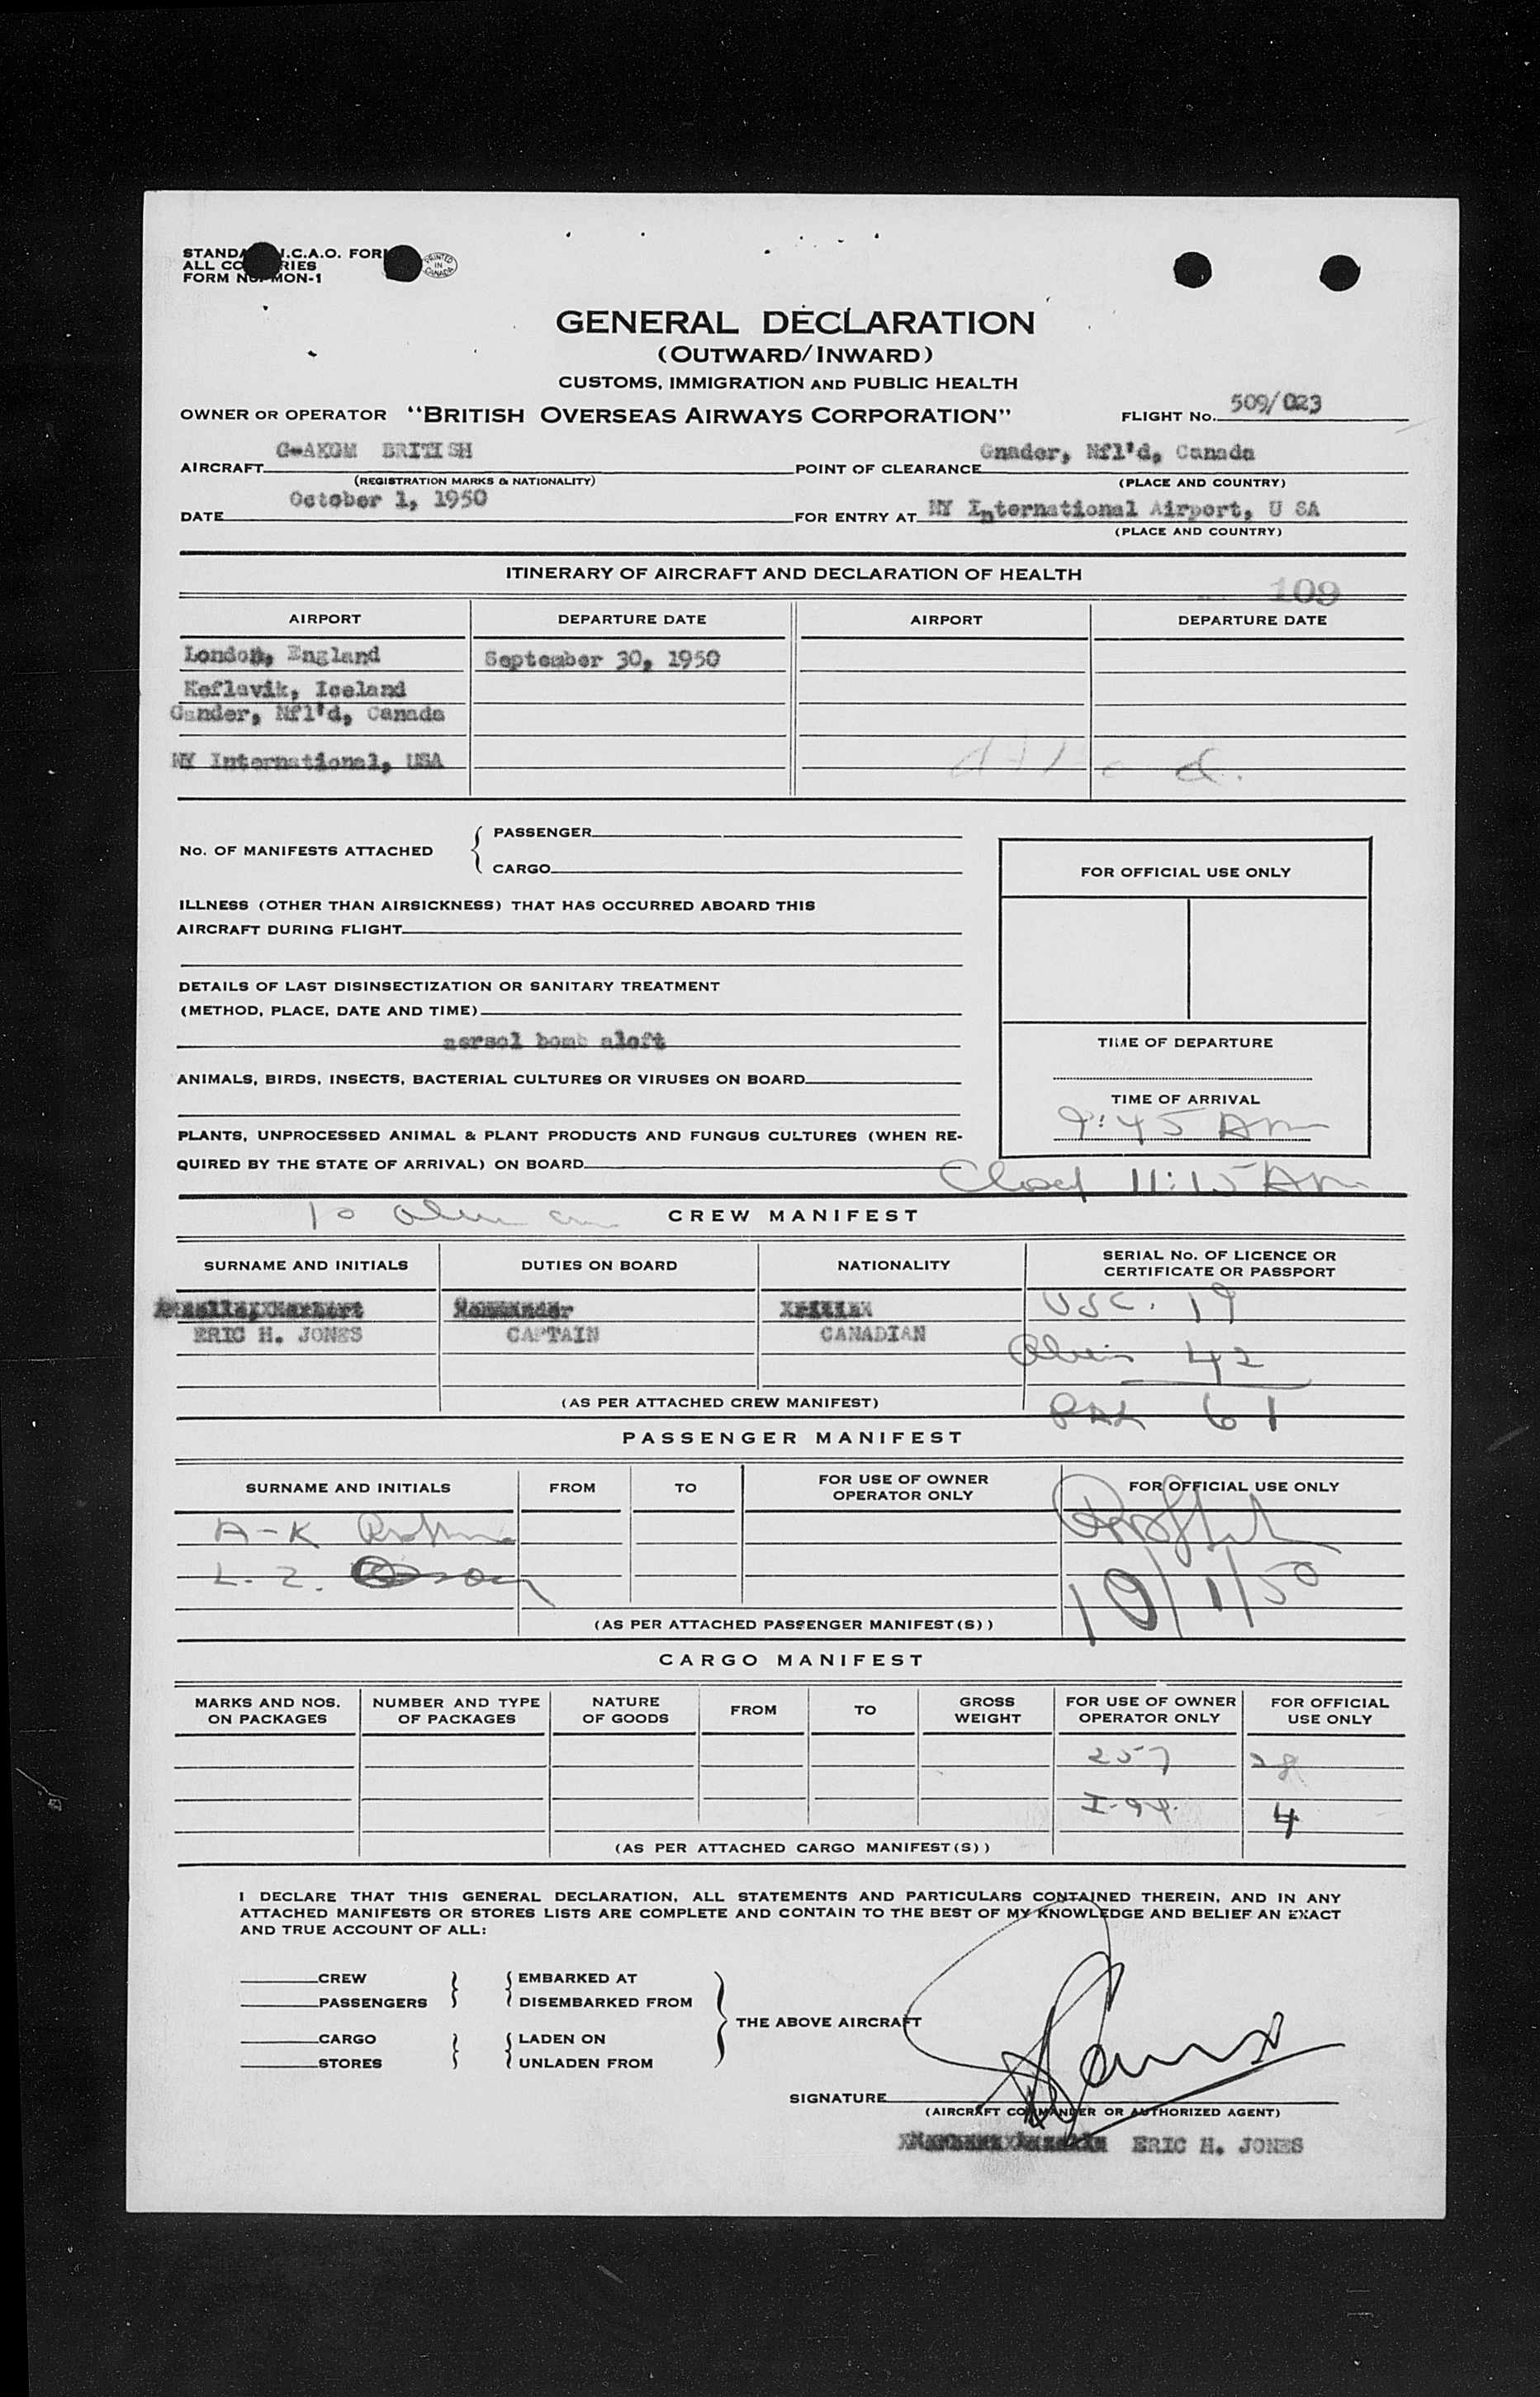 STANDA I.C.A.O. FOR
ALL CO RIES
FORM NO. MON-1
PRINTED IN CANADA
GENERAL DECLARATION
(OUTWARD/INWARD)
CUSTOMS, IMMIGRATION AND PUBLIC HEALTH
OWNER OR OPERATOR "BRITISH OVERSEAS AIRWAYS CORPORATION" FLIGHT No. 509/023
AIRCRAFT G-AKGM BRITISH POINT OF CLEARANCE Gnader, Nfl'd, Canada
(REGISTRATION MARKS & NATIONALITY) (PLACE AND COUNTRY)
DATE October 1, 1950 FOR ENTRY AT NY International Airport, U SA
(PLACE AND COUNTRY)
ITINERARY OF AIRCRAFT AND DECLARATION OF HEALTH
109
AIRPORT DEPARTURE DATE AIRPORT DEPARTURE DATE
London, England September 30, 1950
Keflavik, Iceland
Gander, Nfl'd, Canada
NY International, USA
No. OF MANIFESTS ATTACHED { PASSENGER
CARGO
FOR OFFICIAL USE ONLY
ILLNESS (OTHER THAN AIRSICKNESS) THAT HAS OCCURRED ABOARD THIS
AIRCRAFT DURING FLIGHT
DETAILS OF LAST DISINSECTIZATION OR SANITARY TREATMENT
(METHOD, PLACE, DATE AND TIME)
aersol bomb aloft
TIME OF DEPARTURE
ANIMALS, BIRDS, INSECTS, BACTERIAL CULTURES OR VIRUSES ON BOARD
TIME OF ARRIVAL
9:45 AM
PLANTS, UNPROCESSED ANIMAL & PLANT PRODUCTS AND FUNGUS CULTURES (WHEN RE-
QUIRED BY THE STATE OF ARRIVAL) ON BOARD
Closed 11:15 AM
10 alien
CREW MANIFEST
SURNAME AND INITIALS DUTIES ON BOARD NATIONALITY SERIAL No. OF LICENCE OR
CERTIFICATE OR PASSPORT
USC. 19
ERIC H. JONES CAPTAIN CANADIAN
Alien 42
(AS PER ATTACHED CREW MANIFEST)
61
PASSENGER MANIFEST
SURNAME AND INITIALS FROM TO FOR USE OF OWNER
OPERATOR ONLY FOR OFFICIAL USE ONLY
A-K
L-Z.
10/1/50
(AS PER ATTACHED PASSENGER MANIFEST(S))
CARGO MANIFEST
MARKS AND NOS.
ON PACKAGES NUMBER AND TYPE
OF PACKAGES NATURE
OF GOODS FROM TO GROSS
WEIGHT FOR USE OF OWNER
OPERATOR ONLY FOR OFFICIAL
USE ONLY
257 28
4
(AS PER ATTACHED CARGO MANIFEST(S))
I DECLARE THAT THIS GENERAL DECLARATION, ALL STATEMENTS AND PARTICULARS CONTAINED THEREIN, AND IN ANY
ATTACHED MANIFESTS OR STORES LISTS ARE COMPLETE AND CONTAIN TO THE BEST OF MY KNOWLEDGE AND BELIEF AN EXACT
AND TRUE ACCOUNT OF ALL:
CREW EMBARKED AT
PASSENGERS DISEMBARKED FROM
THE ABOVE AIRCRAFT
CARGO LADEN ON
STORES UNLADEN FROM
SIGNATURE
(AIRCRAFT COMMANDER OR AUTHORIZED AGENT)
ERIC H. JONES